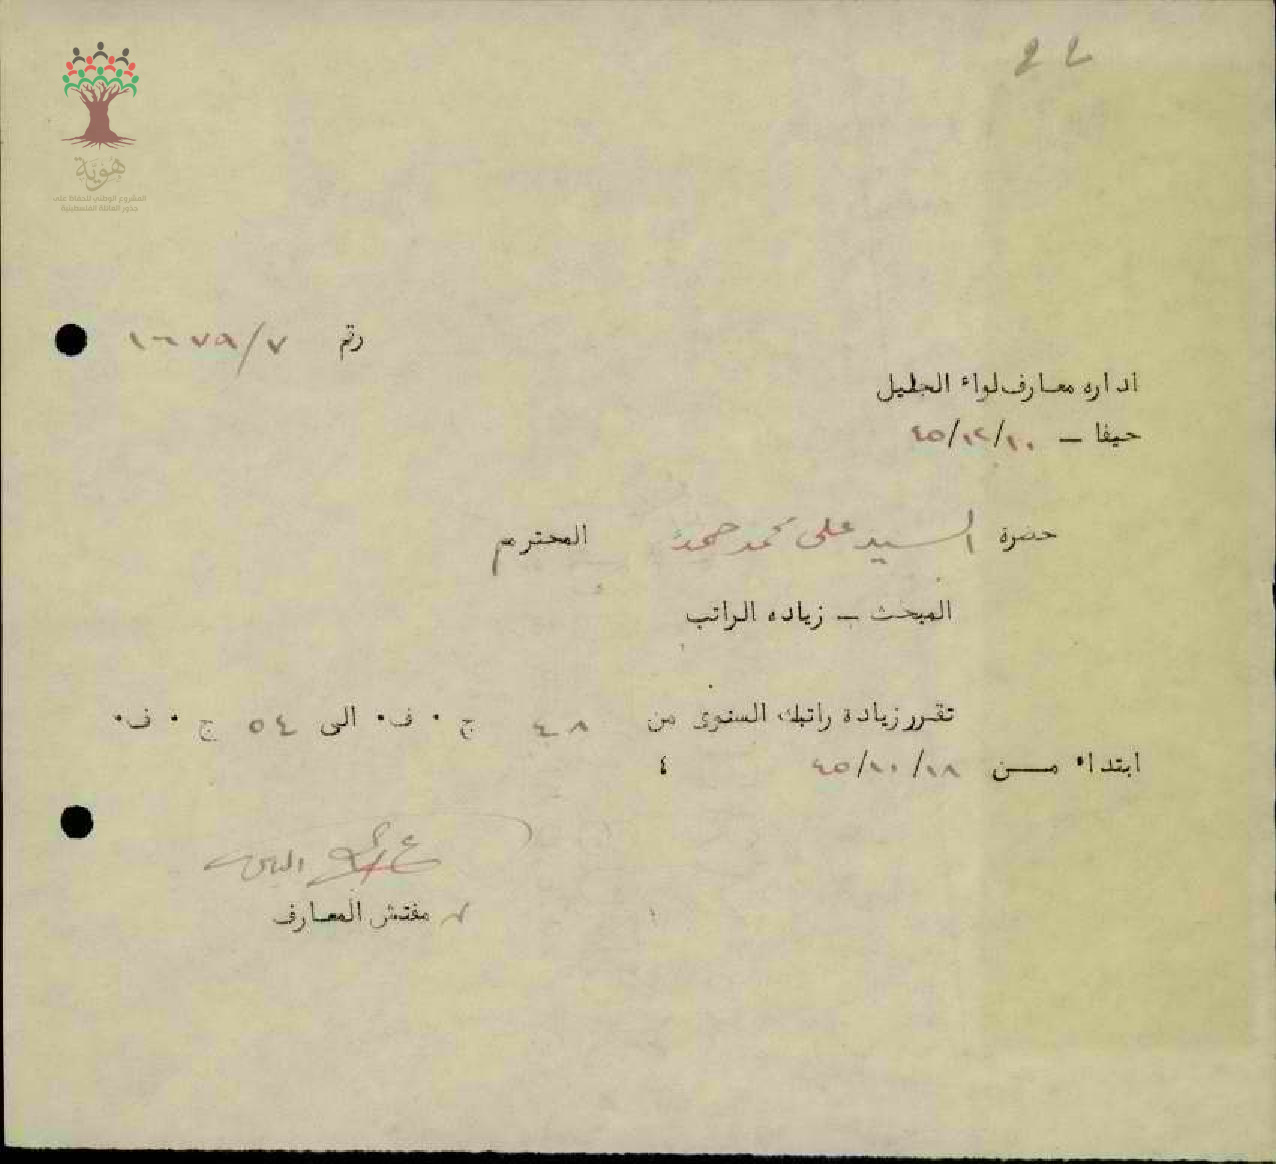 هوية
المشروع الوطني للحفاظ على
جذور العائلة الفلسطينية
رقم ٧/١٦٧٩
اداره معارف لواء الجليل
حيفا – ٤٥/١٢/١٠
حضرة السيد على محمد حمد المحترم
المبحث – زياده الراتب
تقرر زيادة راتبك السنوى من ٤٨ ج ٠ ف٠ الى ٥٤ ج ٠ ف٠
ابتداء من ٤٥/١٠/١٨ ٤
مفتش المعارف